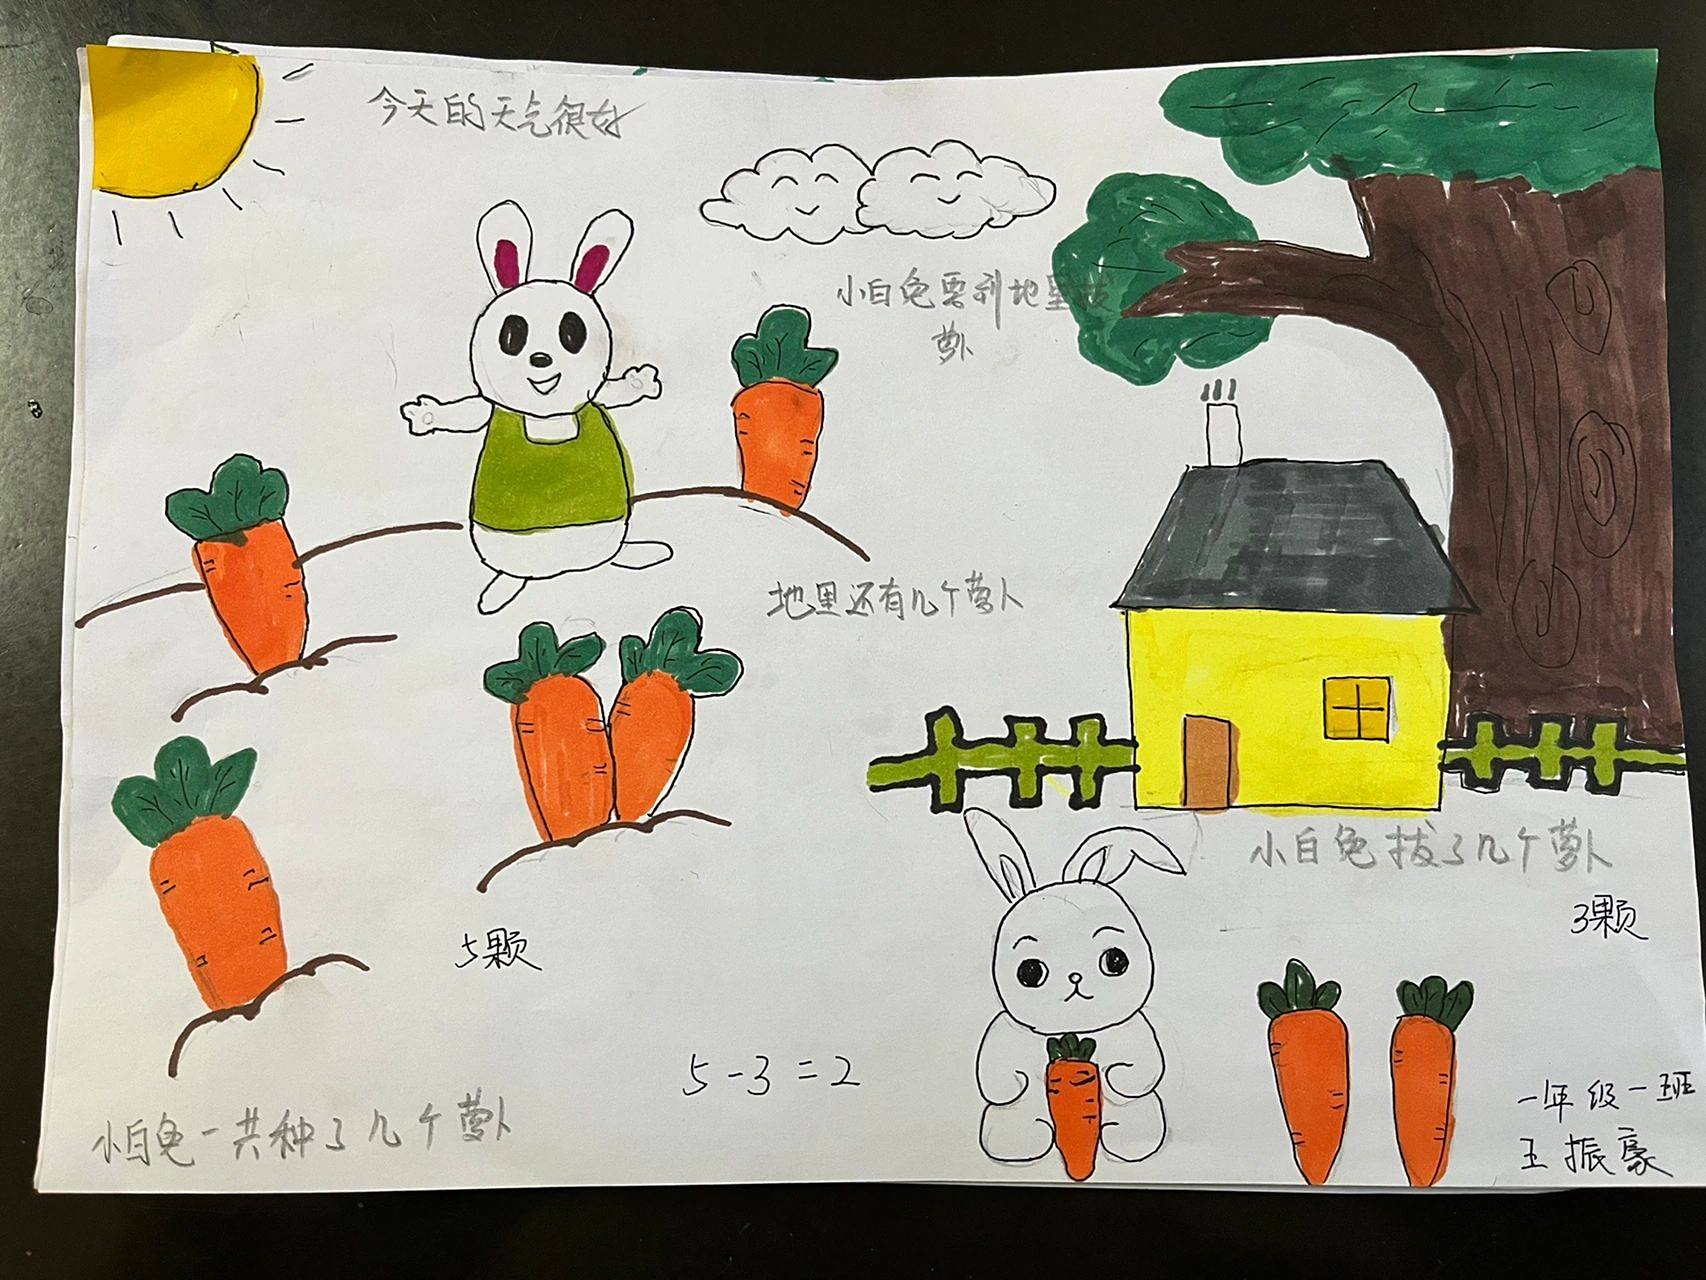 今天的天气很好
小白兔要到地里拔
萝卜
地里还有几个萝卜
小白兔拔了几个萝卜
3颗
5颗
5-3=2
小白兔一共种了几个萝卜
一年级一班
王振豪